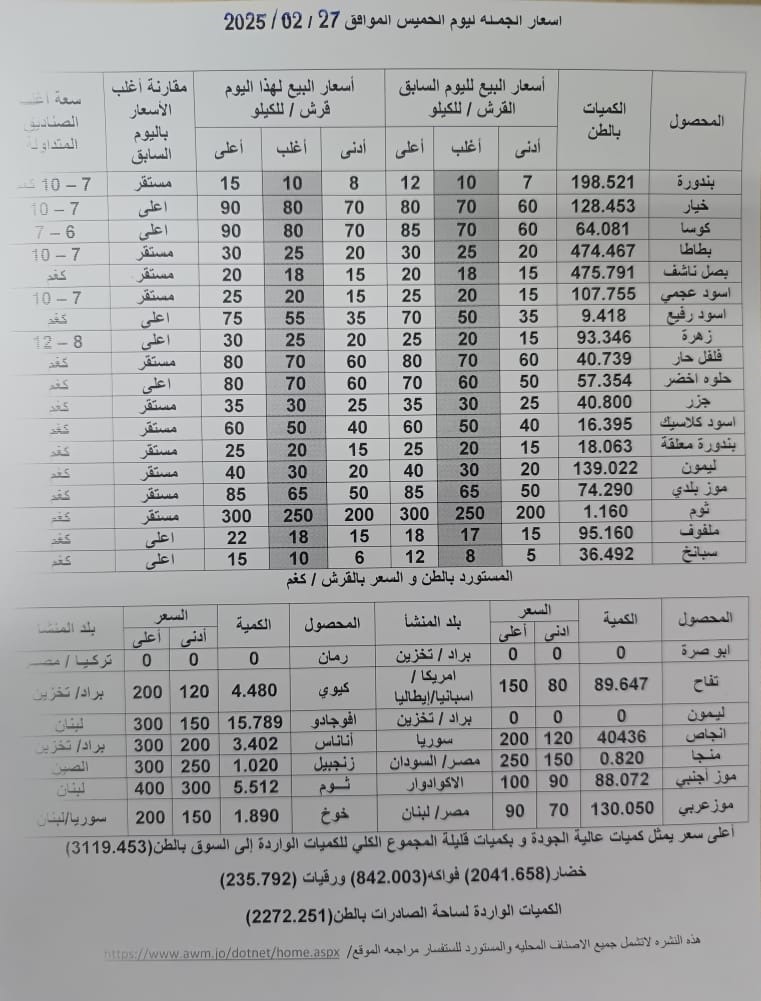 اسعار الجمله ليوم الخميس الموافق 27 / 02 / 2025
المحصول | الكميات بالطن | أسعار البيع لليوم السابق القرش / للكيلو | أسعار البيع لهذا اليوم قرش / للكيلو | مقارنة أغلب الأسعار باليوم السابق | سعة أغلب الصناديق المتداولة
أدنى | أغلب | أعلى | أدنى | أغلب | أعلى
بندورة | 198.521 | 7 | 10 | 12 | 8 | 10 | 15 | مستقر | 7 – 10 كغم
خيار | 128.453 | 60 | 70 | 80 | 70 | 80 | 90 | اعلى | 7 – 10
كوسا | 64.081 | 60 | 70 | 85 | 70 | 80 | 90 | اعلى | 6 – 7
بطاطا | 474.467 | 20 | 25 | 30 | 20 | 25 | 30 | مستقر | 7 – 10
بصل ناشف | 475.791 | 15 | 18 | 20 | 15 | 18 | 20 | مستقر | كغم
اسود عجمي | 107.755 | 15 | 20 | 25 | 15 | 20 | 25 | مستقر | 7 – 10
اسود رفيع | 9.418 | 35 | 50 | 70 | 35 | 55 | 75 | اعلى | كغم
زهرة | 93.346 | 15 | 20 | 25 | 20 | 25 | 30 | اعلى | 8 – 12
فلفل حار | 40.739 | 60 | 70 | 80 | 60 | 70 | 80 | مستقر | كغم
حلوه اخضر | 57.354 | 50 | 60 | 70 | 60 | 70 | 80 | اعلى | كغم
جزر | 40.800 | 25 | 30 | 35 | 25 | 30 | 35 | مستقر | كغم
اسود كلاسيك | 16.395 | 40 | 50 | 60 | 40 | 50 | 60 | مستقر | كغم
بندورة معلقة | 18.063 | 15 | 20 | 25 | 15 | 20 | 25 | مستقر | كغم
ليمون | 139.022 | 20 | 30 | 40 | 20 | 30 | 40 | مستقر | كغم
موز بلدي | 74.290 | 50 | 65 | 85 | 50 | 65 | 85 | مستقر | كغم
ثوم | 1.160 | 200 | 250 | 300 | 200 | 250 | 300 | مستقر | كغم
ملفوف | 95.160 | 15 | 17 | 18 | 15 | 18 | 22 | اعلى | كغم
سبانخ | 36.492 | 5 | 8 | 12 | 6 | 10 | 15 | اعلى | كغم
المستورد بالطن و السعر بالقرش / كغم
المحصول | الكمية | السعر | بلد المنشأ | المحصول | الكمية | السعر | بلد المنشا
ادنى | أعلى | أدنى | أعلى
ابو صرة | 0 | 0 | 0 | براد / تخزين | رمان | 0 | 0 | 0 | تركيا / مصر
تفاح | 89.647 | 80 | 150 | امريكا / اسبانيا/إيطاليا | كيوي | 4.480 | 120 | 200 | براد/ تخزين
ليمون | 0 | 0 | 0 | براد / تخزين | افوجادو | 15.789 | 150 | 300 | لبنان
انجاص | 40436 | 120 | 200 | سوريا | أناناس | 3.402 | 200 | 300 | براد/ تخزين
منجا | 0.820 | 150 | 250 | مصر/ السودان | زنجبيل | 1.020 | 250 | 300 | الصين
موز أجنبي | 88.072 | 90 | 100 | الاكوادوار | ثـــوم | 5.512 | 300 | 400 | لبنان
موزعربي | 130.050 | 70 | 90 | مصر/ لبنان | خوخ | 1.890 | 150 | 200 | سوريا/لبنان
أعلى سعر يمثل كميات عالية الجودة و بكميات قليلة المجموع الكلي للكميات الواردة إلى السوق بالطن(3119.453)
خضار(2041.658) فواكه(842.003) ورقيات (235.792)
الكميات الواردة لساحة الصادرات بالطن(2272.251)
هذه النشره لاتشمل جميع الاصناف المحليه والمستورد للستفسار مراجعه الموقع/ https://www.awm.jo/dotnet/home.aspx